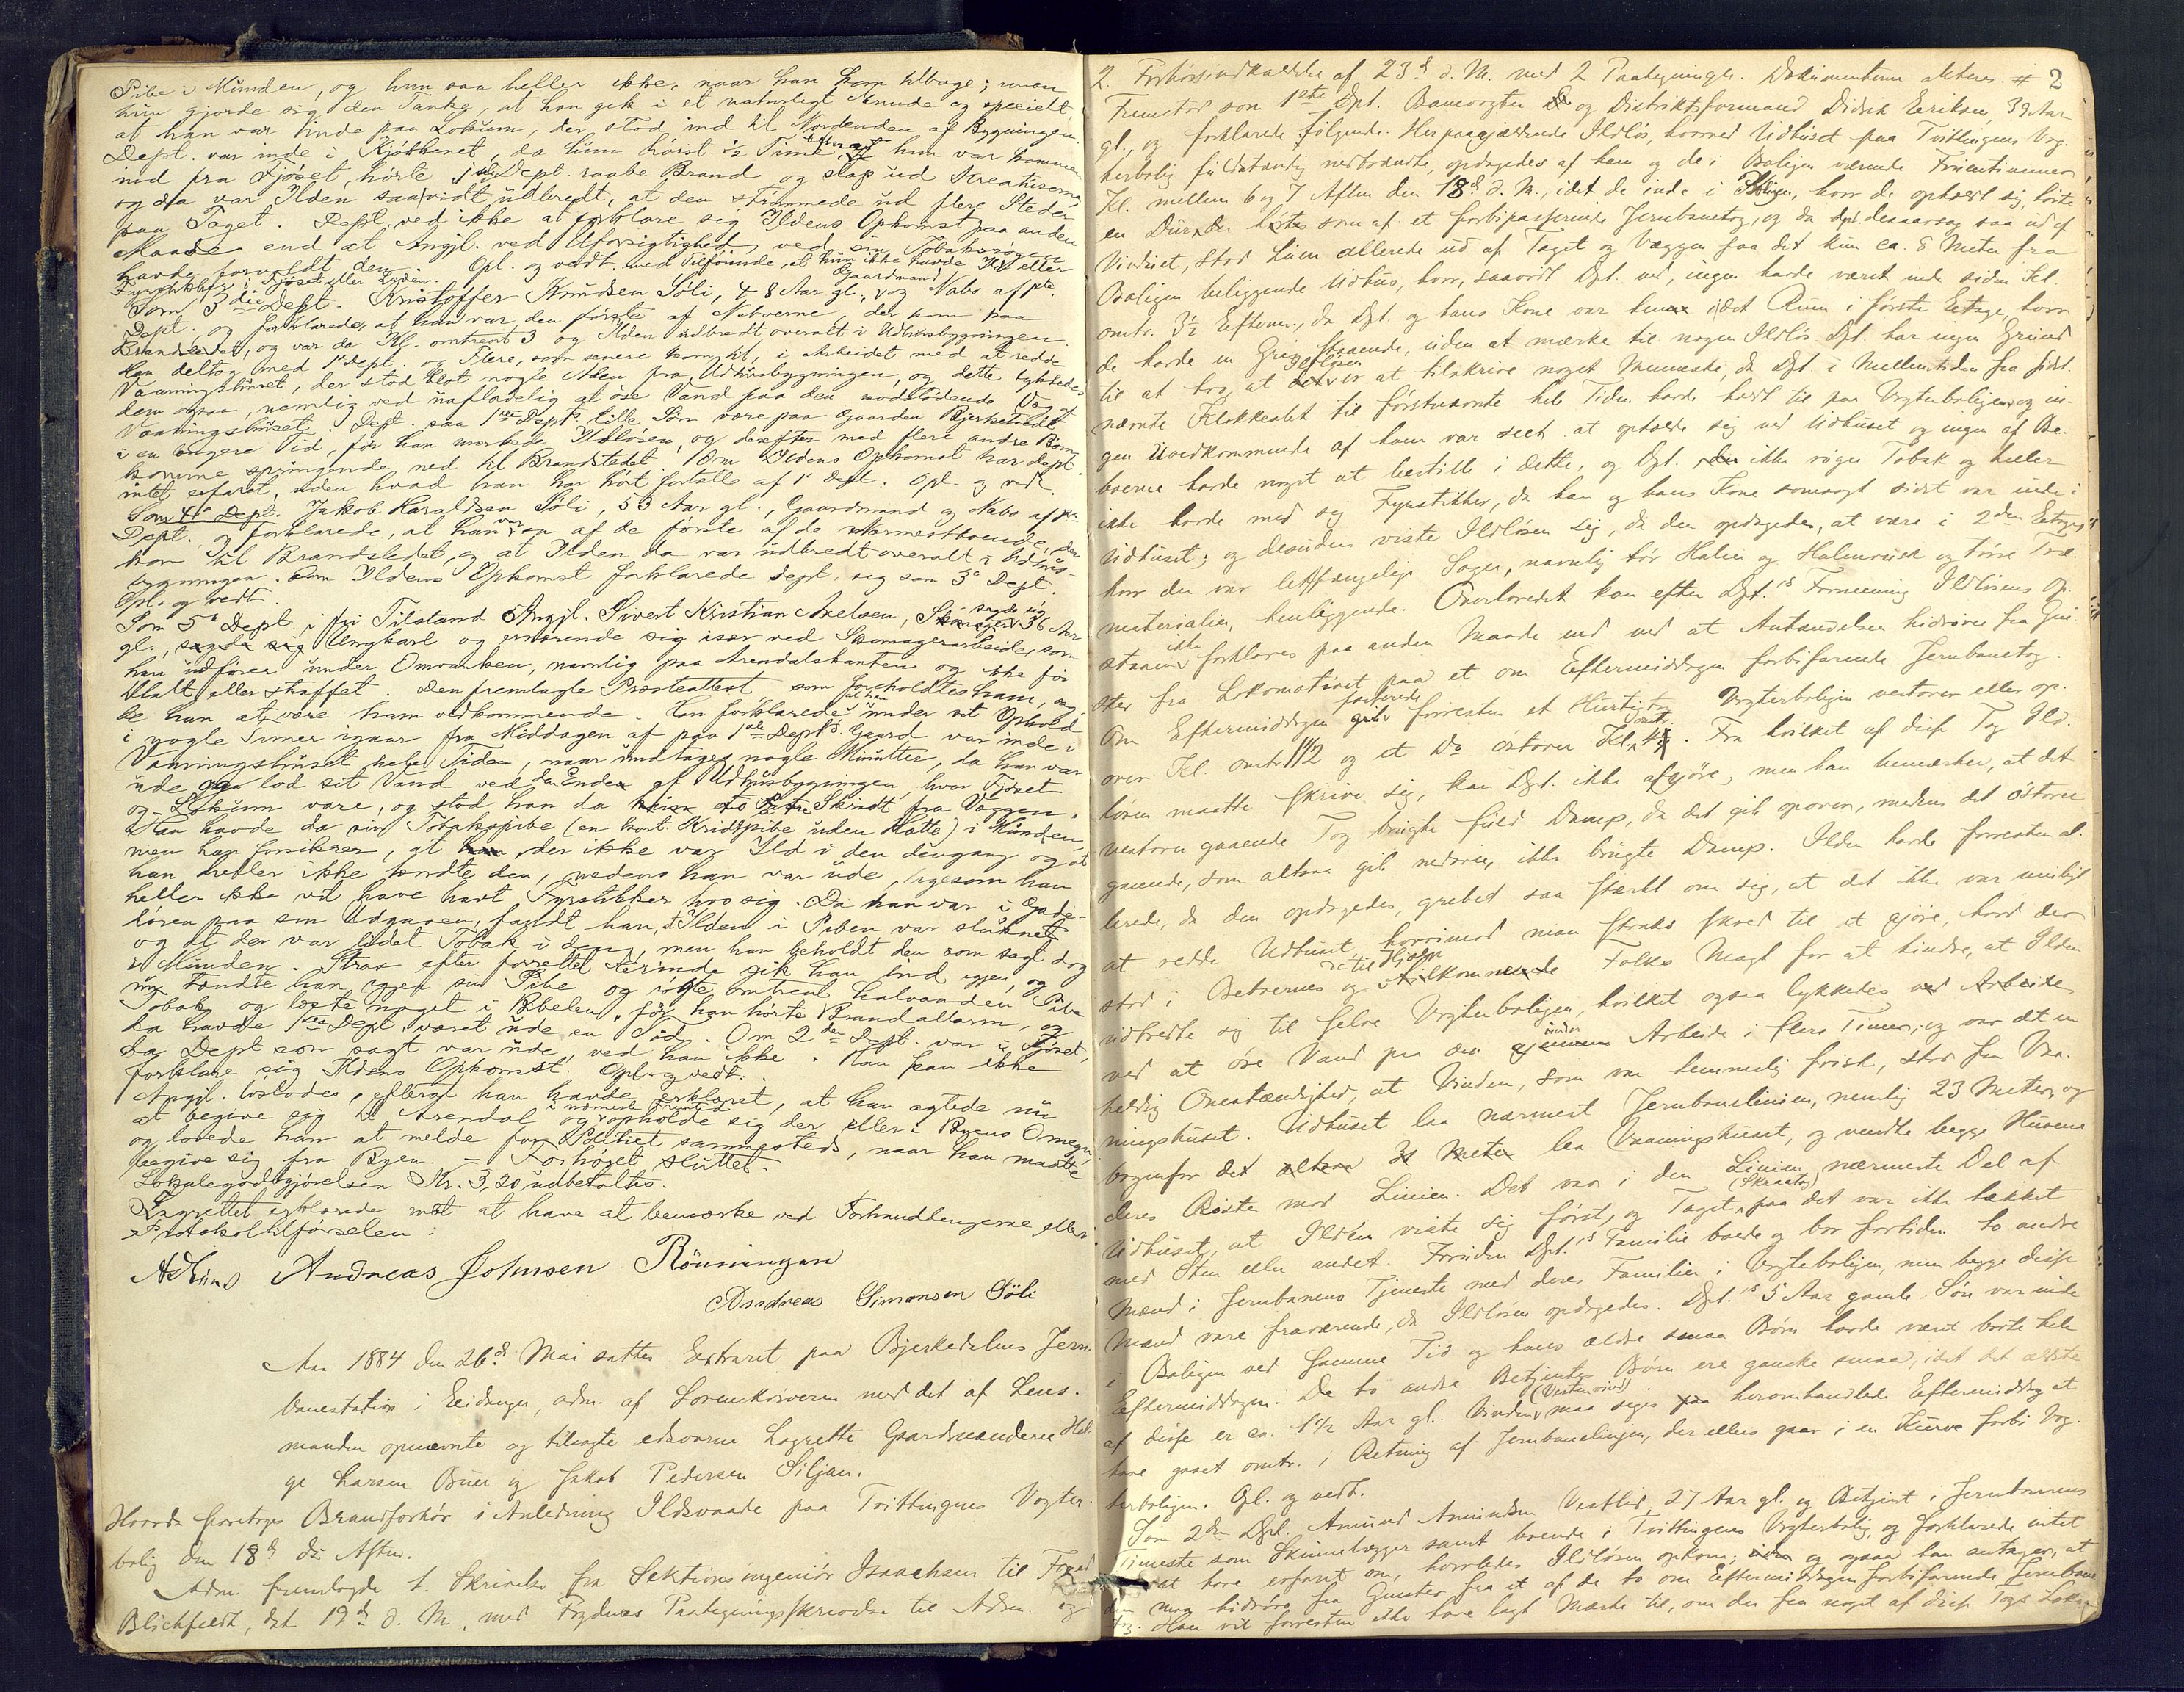 Pibe i Munden, og hun saa heller ikke, naar han kom tilbage; men
hun gjorde sig den Tanke, at han gik i et naturligt Ærinde og specielt,
at han var inde paa Lokum, der stod ind til Nordenden af Bygningen.
Dept. var inde i Kjøkkenet, da hun hørt ½ Time efterat hun var kommen
ind fra Fjøset, hørte 1ste Dept. raabe Brand og slap ud Kreaturerne,
og da var Ilden saavidt udbredt, at den strømmede ud flere Steder
paa Taget. Dept. ved ikke at forklare sig Ildens Opkomst paa anden
Maade end at Angjl. ved Uforsigtighed ved sin Tobaksrøgen
havde forvoldt den. Opl. og vedt. med Tilføiende, at hun ikke havde Ild eller
Fyrstikker i Fjøset eller Lyden.
Som 3die Dept. Kristoffer Knudsen Søli, 48 Aar gl., Gaardmand og Nabo af 1ste
Dept. og forklarede, at han var den første af Naboerne, der kom paa
Brandstedet, og var da Kl. omtrent 3 og Ilden udbredt overalt i Udhusbygningen.
Han deltog med 1ste Dept. og Flere, som senere kom til, i Arbeidet med at redde
Vaaningshuset, der stod blot nogle Alen fra Udhusbygningen, og dette lykkedes
dem ogsaa, nemlig ved uafladelig at øse Vand paa den modstødende Væg af
Vaaningshuset. Dept. saa 1ste Depts lille Søn være paa Gaarden Bjerketvedt
i en længere Tid, før han mærkede Ildløsen, og derefter med flere andre Børn
komme springende ned til Brandstedet. Om Ildens Opkomst har Dept.
intet erfaret, uden hvad han har hørt fortælle af 1ste Dept. Opl. og vedt.
Som 4de Dept. Jakob Haraldsen Søli, 53 Aar gl., Gaardmand og Nabo af 1ste
Dept. og forklarede, at han var en af de første af de Nærmestboende, der
kom til Brandstedet, og at Ilden da var udbredt overalt i Udhus-
bygningen. Om Ildens Opkomst forklarede Dept. sig som 3die Dept.
Opl. og vedt.
Som 5te Dept. i fri Tilstand Angjl. Sivert Kristian Axelsen, sagde sig 36 Aar
gl., Ungkarl og ernærende sig især ved Skomagerarbeide, som
han udfører under Omvanken, navnlig paa Arendalskanten og ikke før
tiltalt eller straffet. Den fremlagte Præsteattest, som foreholdtes ham, ang-
be han at være ham vedkommende. Han forklarede at han under sit Ophold
i nogle Timer igaar fra Middagen af paa 1ste Depts Gaard var inde i
Vaaningshuset hele Tiden, naar undtages nogle Minutter, da han var
ude og lod sit Vand ved den Ende af Udhusbygningen, hvor Fjøset
og Lokum vare, og stod han da to Skridt fra Væggen.
Han havde da sin Tobakspibe (en kort Kridtpibe uden Hætte) i Munden,
men han forsikrer, at der ikke var Ild i den dengang og at
han heller ikke tændte den, medens han var ude, ligesom han
heller ikke vil have havt Fyrstikker hos sig. Da han var i Gade-
døren paa sin Udgaaen, fandt han, at Ilden i Piben var sluknet
og at der var lidet Tobak i den, men han beholdt den som sagt dog
i Munden. Strax efter forrettet Ærinde gik han ind igjen, og
nu tændte han igjen sin Pibe og røgte omtrent halvanden Pibe
Tobak og læste noget i Bibelen, før han hørte Brandallarm, og
da havde 1ste Dept. været ude en Tid. Om 2den Dept. var i Fjøset,
da Dept. som sagt var ude, ved han ikke. Han kan ikke
forklare sig Ildens Opkomst. Opl. og vedt.
Angjl. løslodes, efterat han havde erklæret, at han agtede nu
at begive sig til Arendal og i nærmeste Fremtid opholde sig der eller i Byens Omegn,
og lovede han at melde for Politiet sammesteds, naar han maatte
begive sig fra Byen. – Forhøret sluttet.
Lokalegodtgjørelsen Kr. 3,20 udbetaltes.
Lagrettet erklærede intet at have at bemærke ved Forhandlingerne eller
Protokoltilførselen:
Andreas Johnsen Rönningen
Andreas Simonsen Söli
Aar 1884 den 26de Mai sattes Extraret paa Bjerkedelens Jern-
banestation i Eidanger, adm. af Sorenskriveren med det af Lens-
manden opnævnte og tilsagte edsvorne Lagrette Gaardmændene Hel-
ge Larsen Buer og Jakob Pedersen Siljan.
Hvorda foretoges Brandforhør i Anledning Ildsvaade paa Tvittingens Vogter-
bolig den 18de ds. Aften.
Adm. fremlagde 1. Skrivelse fra Sektionsingeniør Isaachsen til Foged
Blichfeldt, dat. 19de d. M. med Fogdens Paategningsskrivelse til Adm. og
2. Forhørsindkaldelse af 23de d. M. med 2 Paategninger. Dokumenterne akteres. # 2
Fremstod som 1ste Dpt. Banevogter og Distriktsformand Didrik Eriksen, 39 Aar
gl., og forklarede følgende. Herpaagjældende Ildløs, hvorved Udhuset paa Tvittingens Vog-
terbolig fuldstændig nedbrændte, opdagedes af ham og de i Boligen værende Fruentimmer
Kl. mellem 6 og 7 Aften den 18de d. M., idet de inde i Boligen, hvor de opholdt sig, hørte
en Duren som af et forbipasserende Jernbanetog, og da Dpt. desaarsag saa ud af
Vinduet, stod Luen allerede ud af Taget og Væggen paa det kun ca. 8 Meter fra
Boligen beliggende Udhus, hvor, saavidt Dpt. ved, ingen havde været inde siden Kl.
omtr. 3½ Efterm., da Dpt. og hans Kone var i det Rum i første Etage, hvor
de havde en Gris staaende, uden at mærke til nogen Ildløs. Dpt. har ingen Grund
til at tro, at Ildløsen er at tilskrive noget Menneske, da Dpt. i Mellemtiden fra sidst-
nævnte Klokkeslet til førstnævnte hele Tiden havde holdt til paa Vogterboligen og in-
gen Uvedkommende af ham var seet at opholde sig ved Udhuset og ingen af Be-
boerne havde noget at bestille i dette, og Dpt. ikke røger Tobak og heller
ikke havde med sig Fyrstikker, da han og hans Kone somsagt sidst var inde i
Udhuset; og desuden viste Ildløsen sig, da den opdagedes, at være i 2den Etage,
hvor der var letfængelige Sager, navnlig tør Halm og Halmrusk og tørre Træ-
materialier, henliggende. Overhovedet kan efter Dpt.s Formening Ildløsens Op-
staaen ikke forklares paa anden Maade end ved at Antændelsen hidrører fra Gni-
ster fra Lokomotivet paa et om Eftermiddagen forbifarende Jernbanetog.
Om Eftermiddagen passerede forresten et Hurtigtog Vogterboligen vestover eller op-
over Kl. omtr. 1½ og et Do østover Kl. omtr. 4½. Fra hvilket af disse Tog Ild-
løsen maatte skrive sig, kan Dpt. ikke afgjøre, men han bemærker, at det
vestover gaaende Tog brugte fuld Damp, da det gik opover, medens det østover
gaaende, som altsaa gik nedover, ikke brugte Damp. Ilden havde forresten al-
lerede, da den opdagedes, grebet saa stærkt om sig, at det ikke var muligt
at redde Udhuset, hvorimod man straks skred til at gjøre, hvad der
stod i Beboernes og til Hjælp tilkommne Folks Magt for at hindre, at Ilden
udbredte sig til selve Vogterboligen, hvilket ogsaa lykkedes
ved at øse Vand paa den under Arbeide i flere Timer; og var det en
heldig Omstændighed, at Vinden, som var temmelig frisk, stod fra Vaa-
ningshuset. Udhuset laa nærmest Jernbanelinien, nemlig 23 Meter, og
bagenfor det laa Vaaningshuset, og vendte begge Husene
deres Røste mod Linien. Det var i den Linien nærmeste Del af
Udhuset, at Ilden viste sig først, og Taget (Skraatag) paa det var ikke tækket
med Sten eller andet. Foruden Dpt.s Familie boede og bor fortiden to andre
Mænd i Jernbanens Tjeneste med deres Familier i Vogterboligen, men begge disse
Mænd vare fraværende, da Ildløsen opdagedes. Dpt.s 5 Aar gamle Søn var inde
i Boligen ved samme Tid og hans ældre smaa Børn havde været borte hele
Eftermiddagen. De to andre Betjentes Børn ere ganske smaa, idet det ældste
af disse er ca. 1½ Aar gl. Vinden (Vestenvind) maa siges heromhandlede Eftermiddag at
have gaaet omtr. i Retning af Jernbanelinjen, der ellers gaar i en Kurve forbi Vog-
terboligen. Opl. og vedt.
Som 2den Dpt. Amund Amundsen Vestlid, 27 Aar gl. og Betjent i Jernbanens
Tjeneste som Skinnelægger samt boende i Tvittingens Vogterbolig, og forklarede intet
at have erfaret om, hvorledes Ildløsen opkom; og ogsaa han antager, at
den maa hidrøre fra Gnister fra et af de to om Eftermiddagen forbifarende Jernbane-
tog. Han vil forresten ikke have lagt Mærke til, om der fra noget af disse Togs Loko-